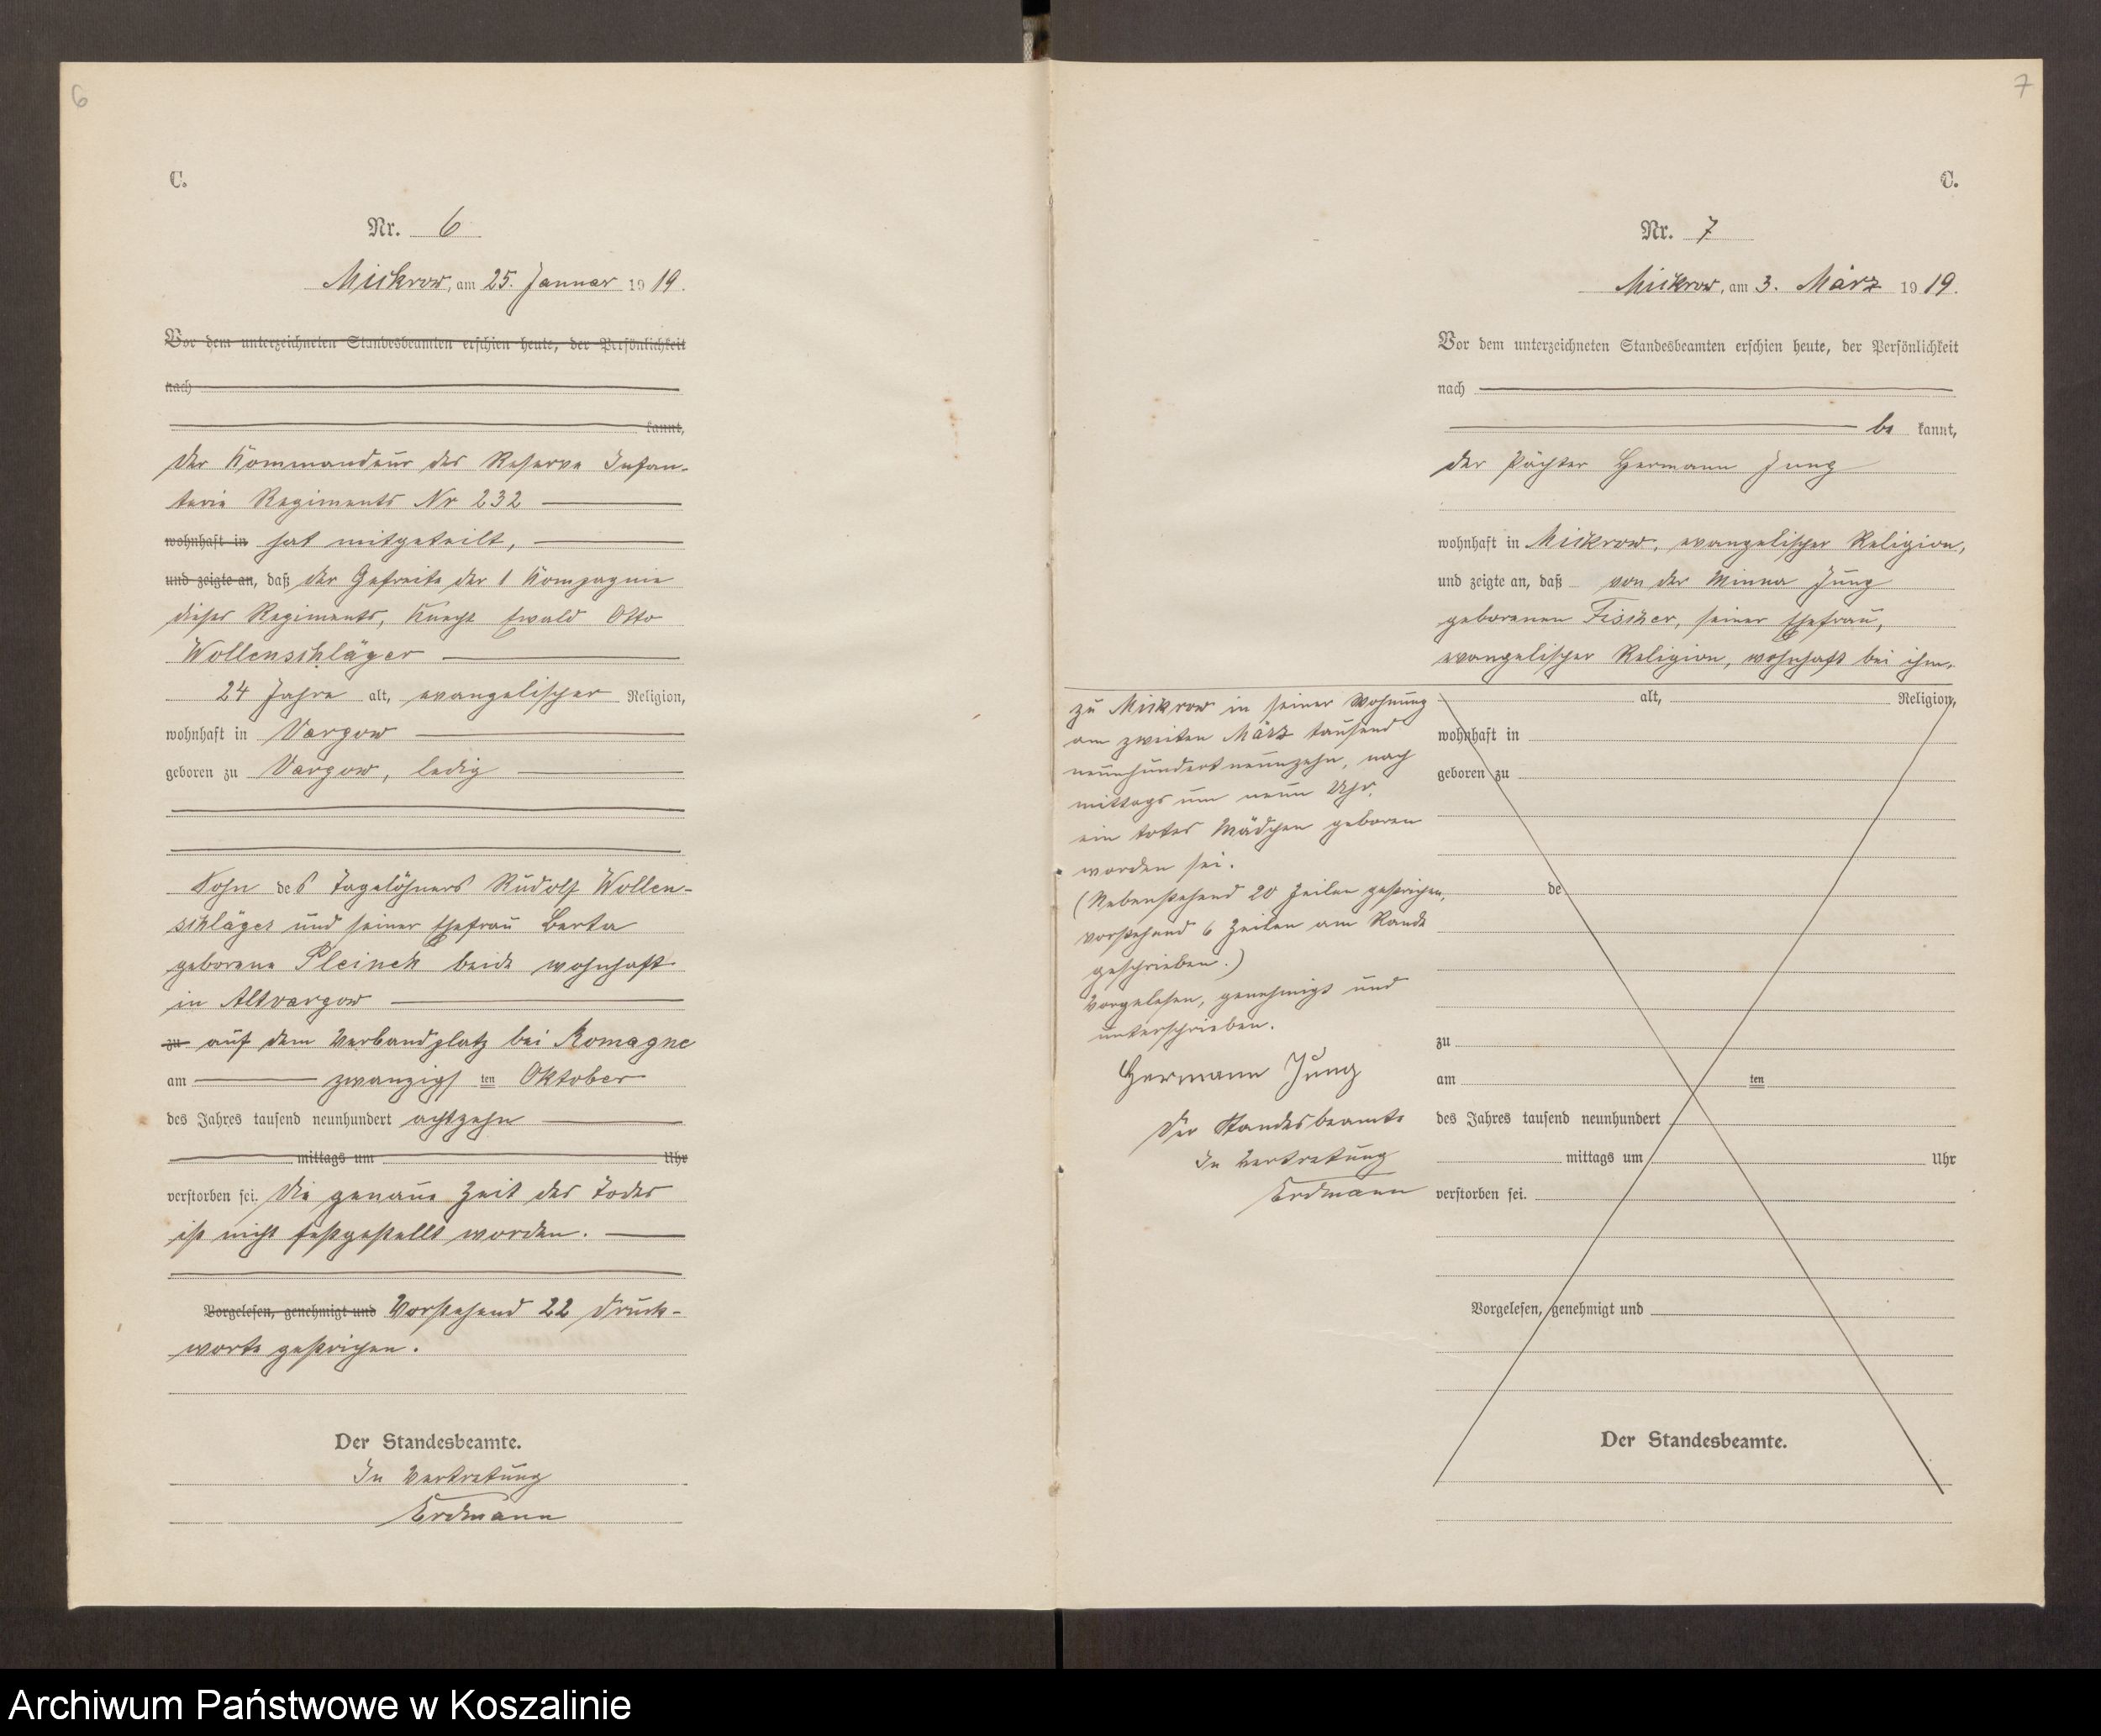 6
C.
Nr. 6
Mickrow, am 25. Januar 1919.
Vor dem unterzeichneten Standesbeamten erschien heute, der Persönlichkeit
nach
kannt,
der Kommandeur des Reserve Infan-
terie Regiments Nr 232
wohnhaft in hat mitgeteilt,
und zeigte an, daß der Gefreite der 1 Kompagnie
dieses Regiments, Knecht Ewald Otto
Wollenschläger
24 Jahre alt, evangelischer Religion,
wohnhaft in Vargow
geboren zu Vargow, ledig
Sohn des Tagelöhners Rudolf Wollen-
schläger und seiner Ehefrau Berta
geborene Pleinek beide wohnhaft
in Altvargow
zu auf dem Verbandplatz bei Romagne
am zwanzigsten Oktober
des Jahres tausend neunhundert achtzehn
mittags um Uhr
verstorben sei. Die genaue Zeit des Todes
ist nicht festgestellt worden.
Vorgelesen, genehmigt und Vorstehend 22 Druck-
worte gestrichen.
Der Standesbeamte.
In Vertretung
Erdmann
7
C.
Nr. 7
Mickrow, am 3. März 1919.
Vor dem unterzeichneten Standesbeamten erschien heute, der Persönlichkeit
nach
be kannt,
der Pächter Hermann Jung
wohnhaft in Mickrow, evangelischer Religion,
und zeigte an, daß von der Minna Jung
geborenen Fischer, seiner Ehefrau,
evangelischer Religion, wohnhaft bei ihm,
zu Mickrow in seiner Wohnung
am zweiten März tausend
neunhundertneunzehn, nach
mittags um neun Uhr
ein totes Mädchen geboren
worden sei.
(Nebenstehend 20 Zeilen gestrichen,
vorstehend 6 Zeilen am Rande
geschrieben.)
Vorgelesen, genehmigt und
unterschrieben.
Hermann Jung
Der Standesbeamte
In Vertretung
Erdmann
alt, Religion,
wohnhaft in
geboren zu
de
zu
am ten
des Jahres tausend neunhundert
mittags um Uhr
verstorben sei.
Vorgelesen, genehmigt und
Der Standesbeamte.
Archiwum Państwowe w Koszalinie